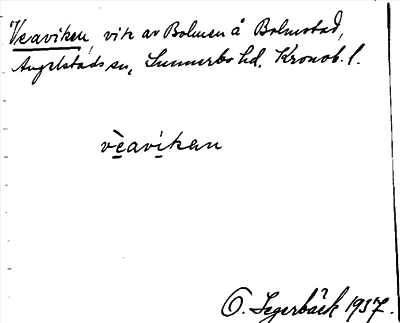 Veaviken, vik av Bolmen å Bolmstad,
Angelstads sn, Sunnerbo hd, Kronob. l.
vèavikan
O. Segerbäck 1937.